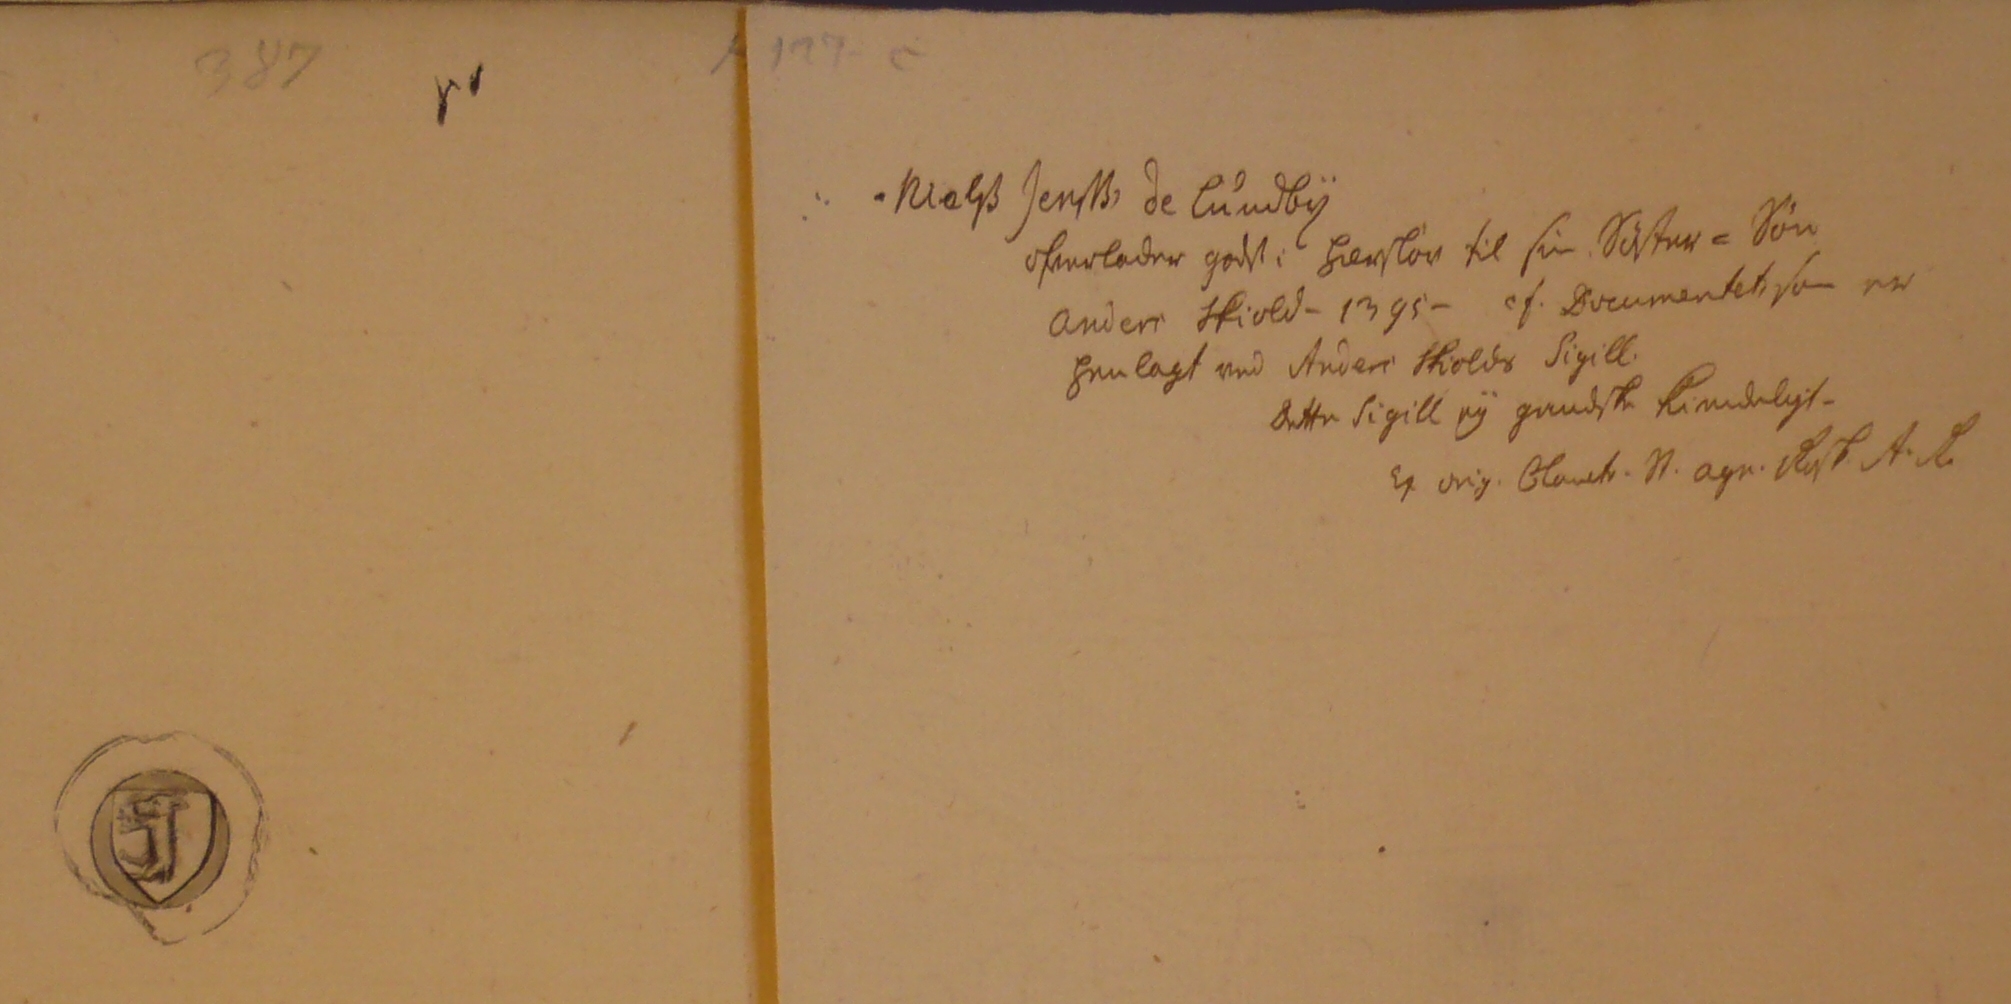 387
r'
177- c
Nielß Jenßß de Lundbÿ
ofverlader gods i Hersløv til sin Søster = Søn
Anders Skiold - 1395 - cf. Documentet, som er
henlagt ved Anders Skiolds Sigill.
Dette Sigill eÿ gandske kiendeligt -
Ex orig. Claustr. St. Agn. Rosk. A. R.